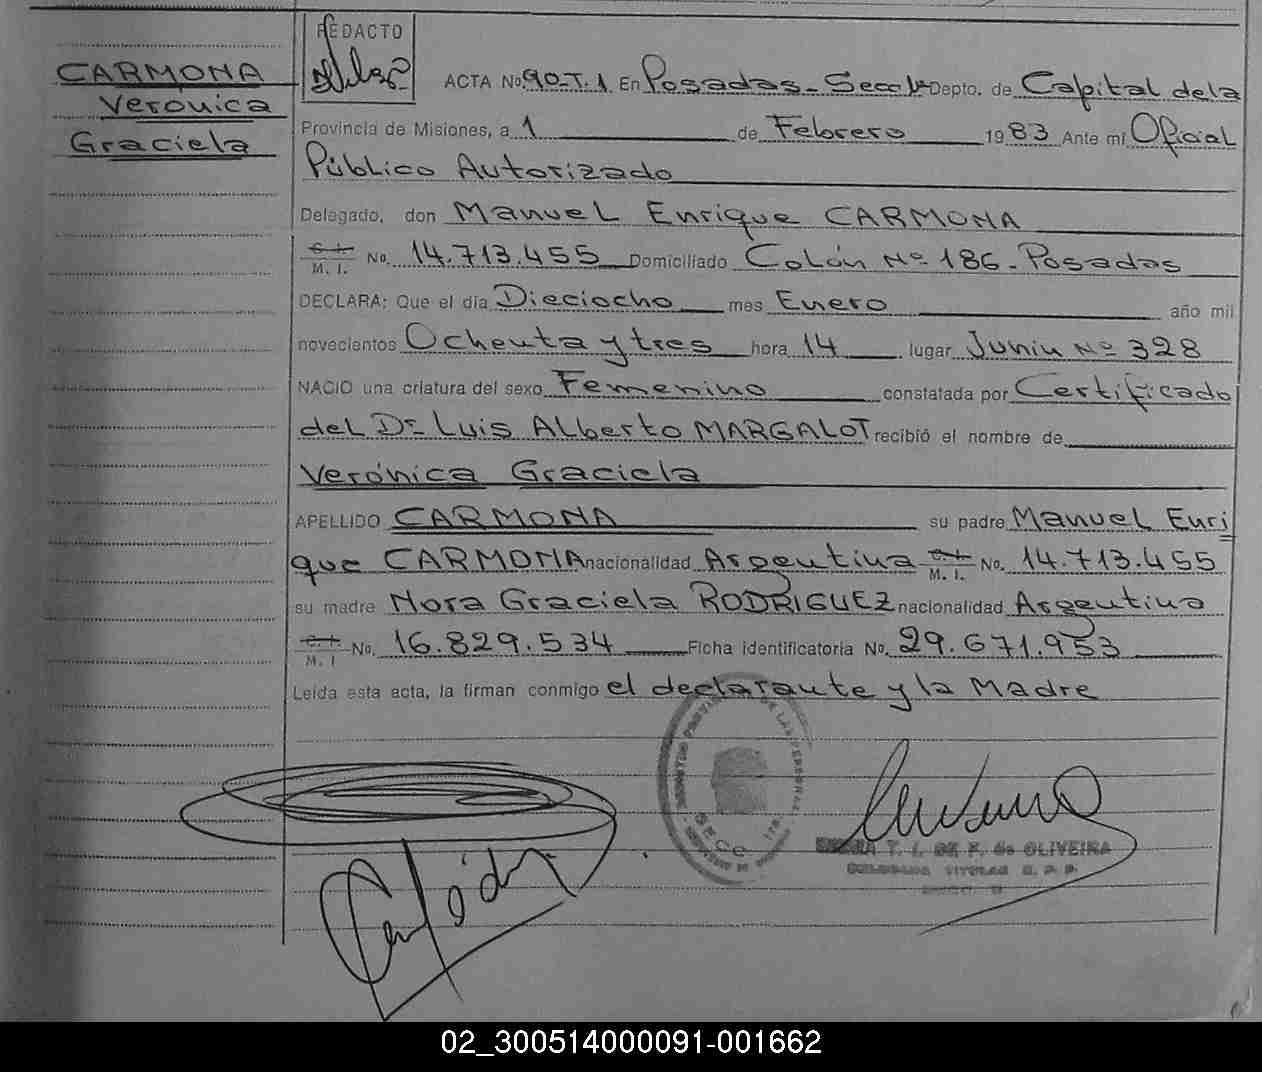 CARMONA
Verónica
Graciela
REDACTO
ACTA No. 90-T.1 En Posadas - Secc 1ª Depto. de Capital de la
Provincia de Misiones, a 1 de Febrero 1983 Ante mí Oficial
Público Autorizado
Delegado, don Manuel Enrique CARMONA
C. I. M. I. No. 14.713.455 Domiciliado Colón Nº 186 - Posadas
DECLARA: Que el día Dieciocho mes Enero año mil
novecientos Ochenta y tres hora 14 lugar Junín Nº 328
NACIO una criatura del sexo Femenino constatada por Certificado
del Dr Luis Alberto MARGALOT recibió el nombre de
Verónica Graciela
APELLIDO CARMONA su padre Manuel Enri
que CARMONA nacionalidad Argentina C. I. M. I. No. 14.713.455
su madre Nora Graciela RODRIGUEZ nacionalidad Argentina
C. I. M. I No. 16.829.534 Ficha identificatoria No. 29.671.953
Leída esta acta, la firman conmigo el declarante y la Madre
DE LAS PERSONAS
SECC
T. I. DE F. de OLIVEIRA
TITULAR R. P. P.
02_300514000091-001662